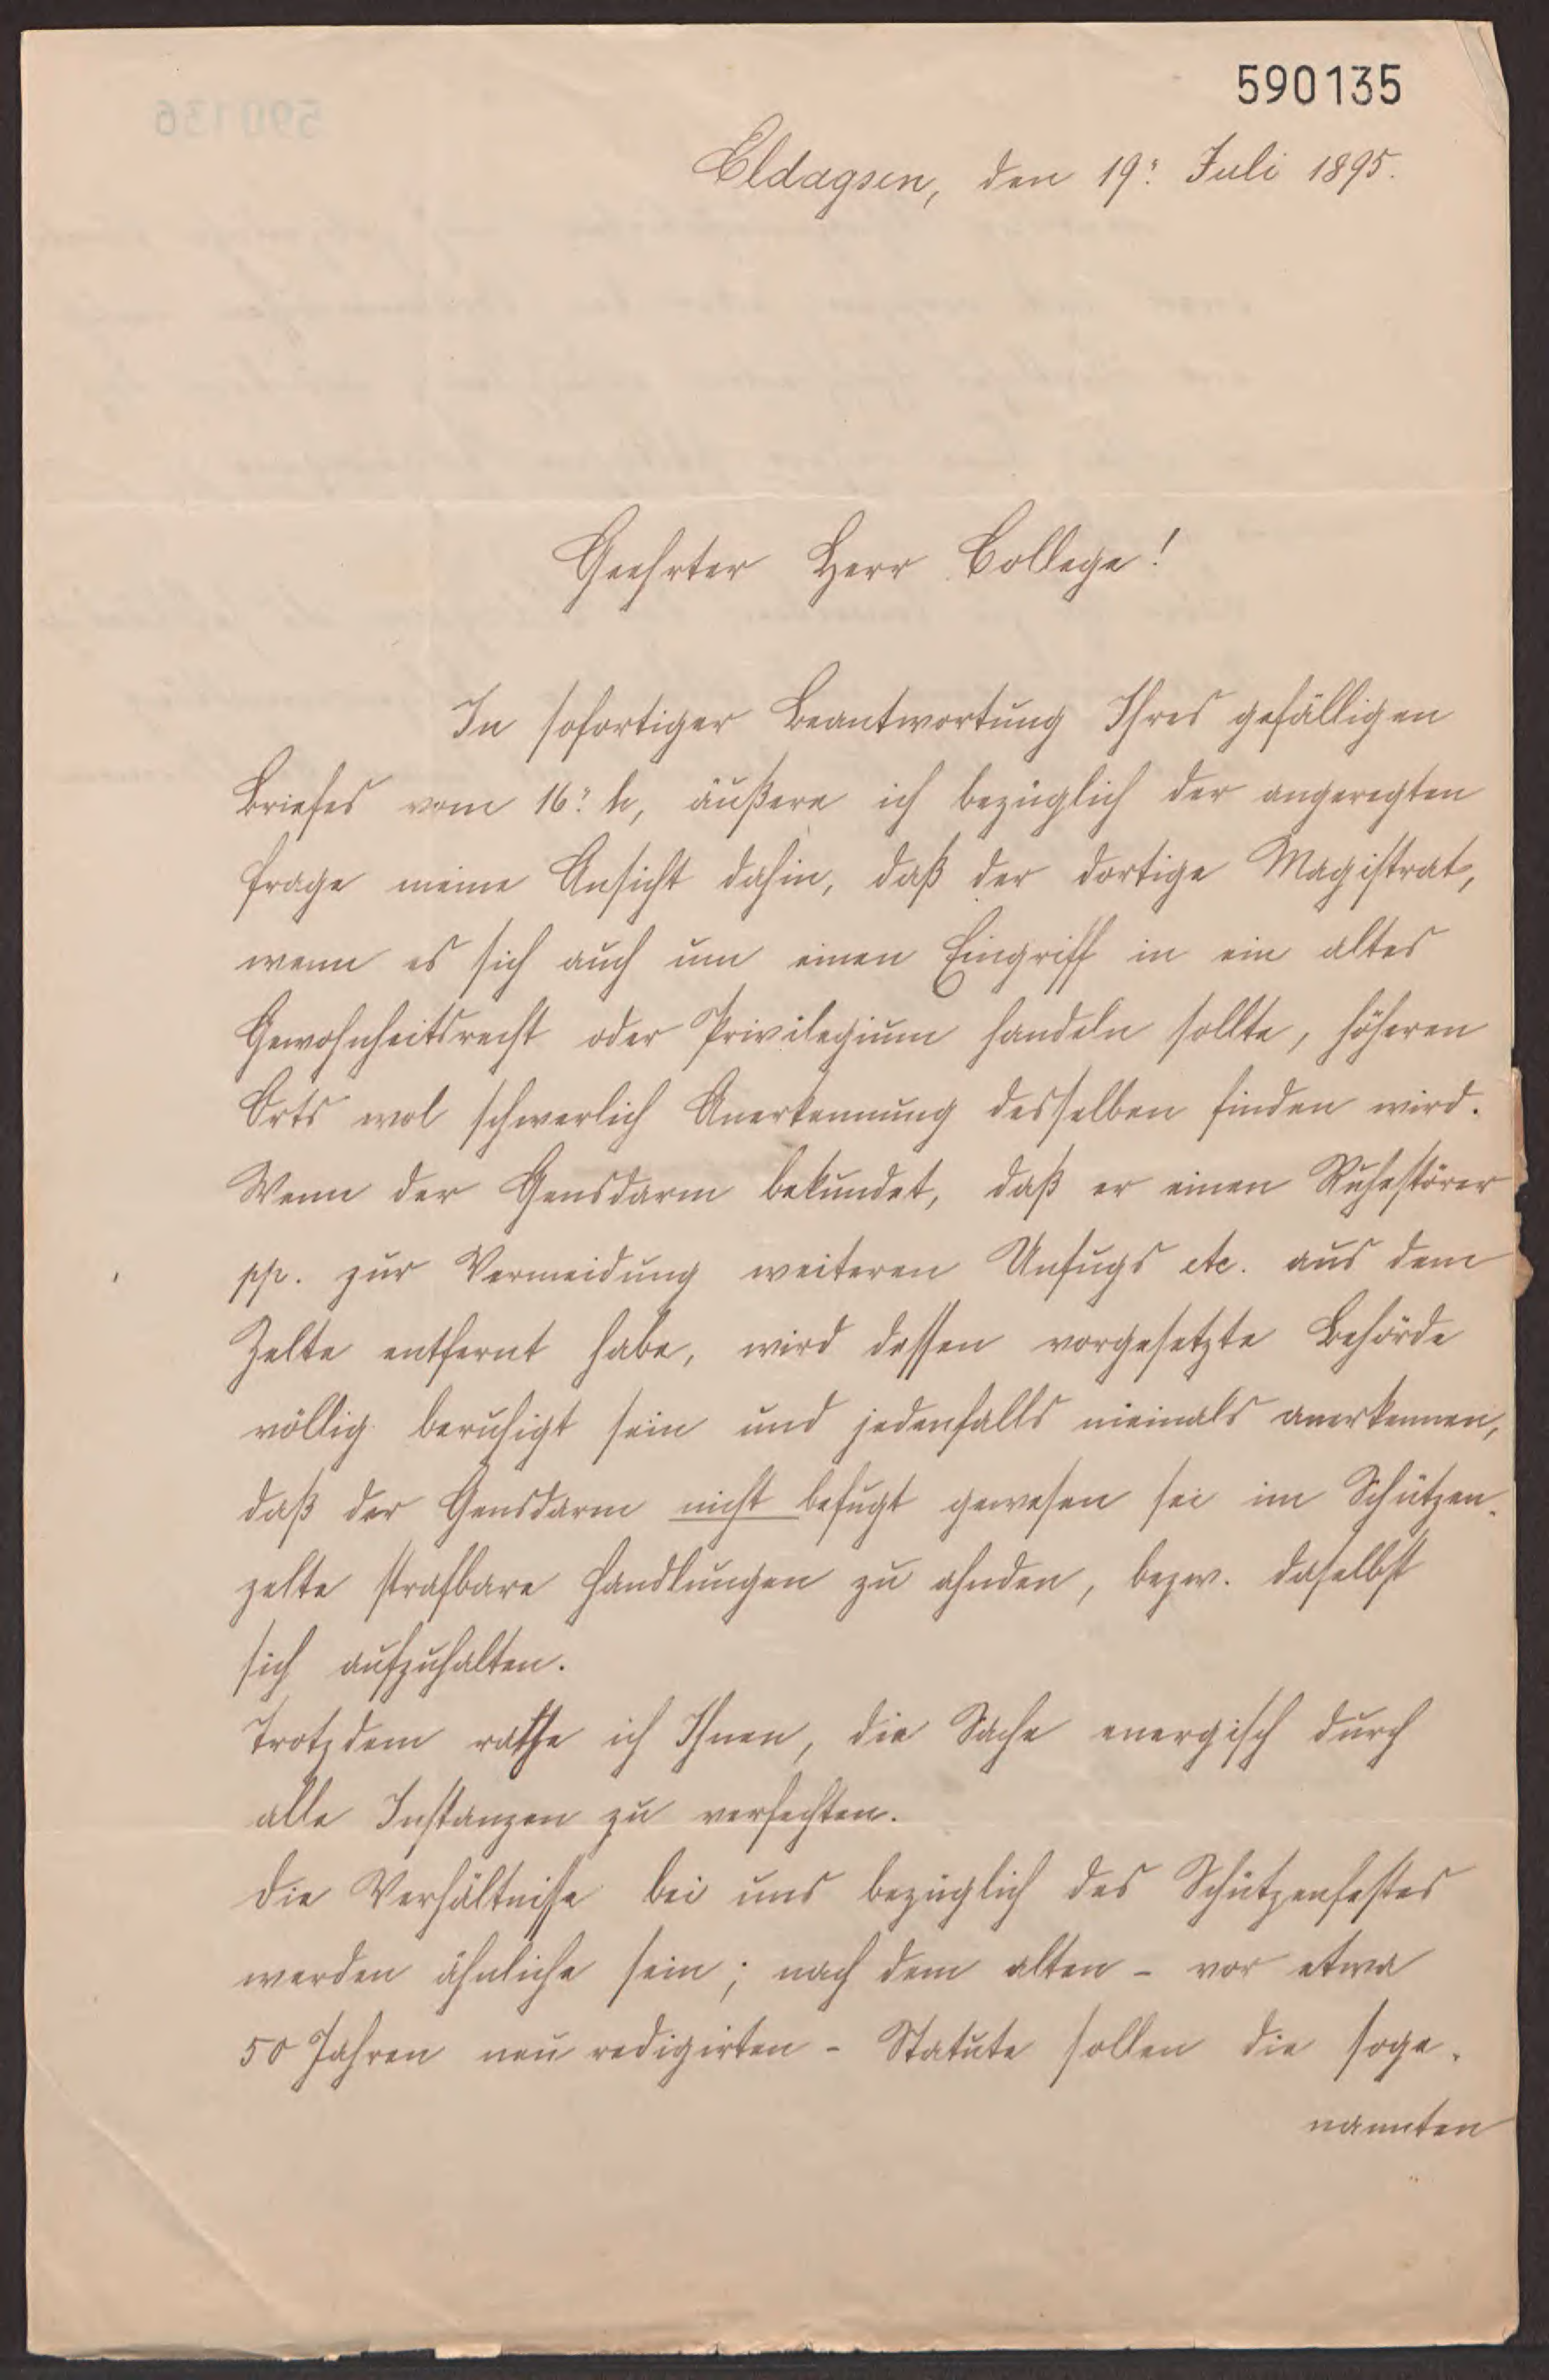 590135
Eldagsen, den 19ᵗ Juli 1895.
Geehrter Herr College!
In sofortiger Beantwortung Ihres gefälligen
Briefes vom 16ᵗ h, äußere ich bezüglich der angeregten
Frage meine Ansicht dahin, daß der dortige Magistrat,
wenn es sich auch um einen Eingriff in ein altes
Gewohnheitsrecht oder Privilegium handeln sollte, höheren
Orts wol schwerlich Anerkennung desselben finden wird.
Wenn der Gensdarm bekundet, daß er einen Ruhestörer
pp. zur Vermeidung weiteren Unfugs etc. aus dem
Zelte entfernt habe, wird dessen vorgesetzte Behörde
völlig beruhigt sein und jedenfalls niemals anerkennen,
daß der Gensdarm nicht befugt gewesen sei im Schützen-
zelte strafbare Handlungen zu ahnden, bezw. daselbst
sich aufzuhalten.
Trotzdem rathe ich Ihnen, die Sache energisch durch
alle Instanzen zu verfechten.
Die Verhältnisse bei uns bezüglich des Schützenfestes
werden ähnliche sein; nach dem alten - vor etwa
50 Jahren neu redigirten - Statute sollen die soge-
nannten